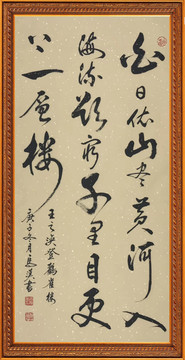 白日依山尽黄河入
海流欲穷千里目更
上一层楼
王之涣登鹳雀楼
庚子冬月